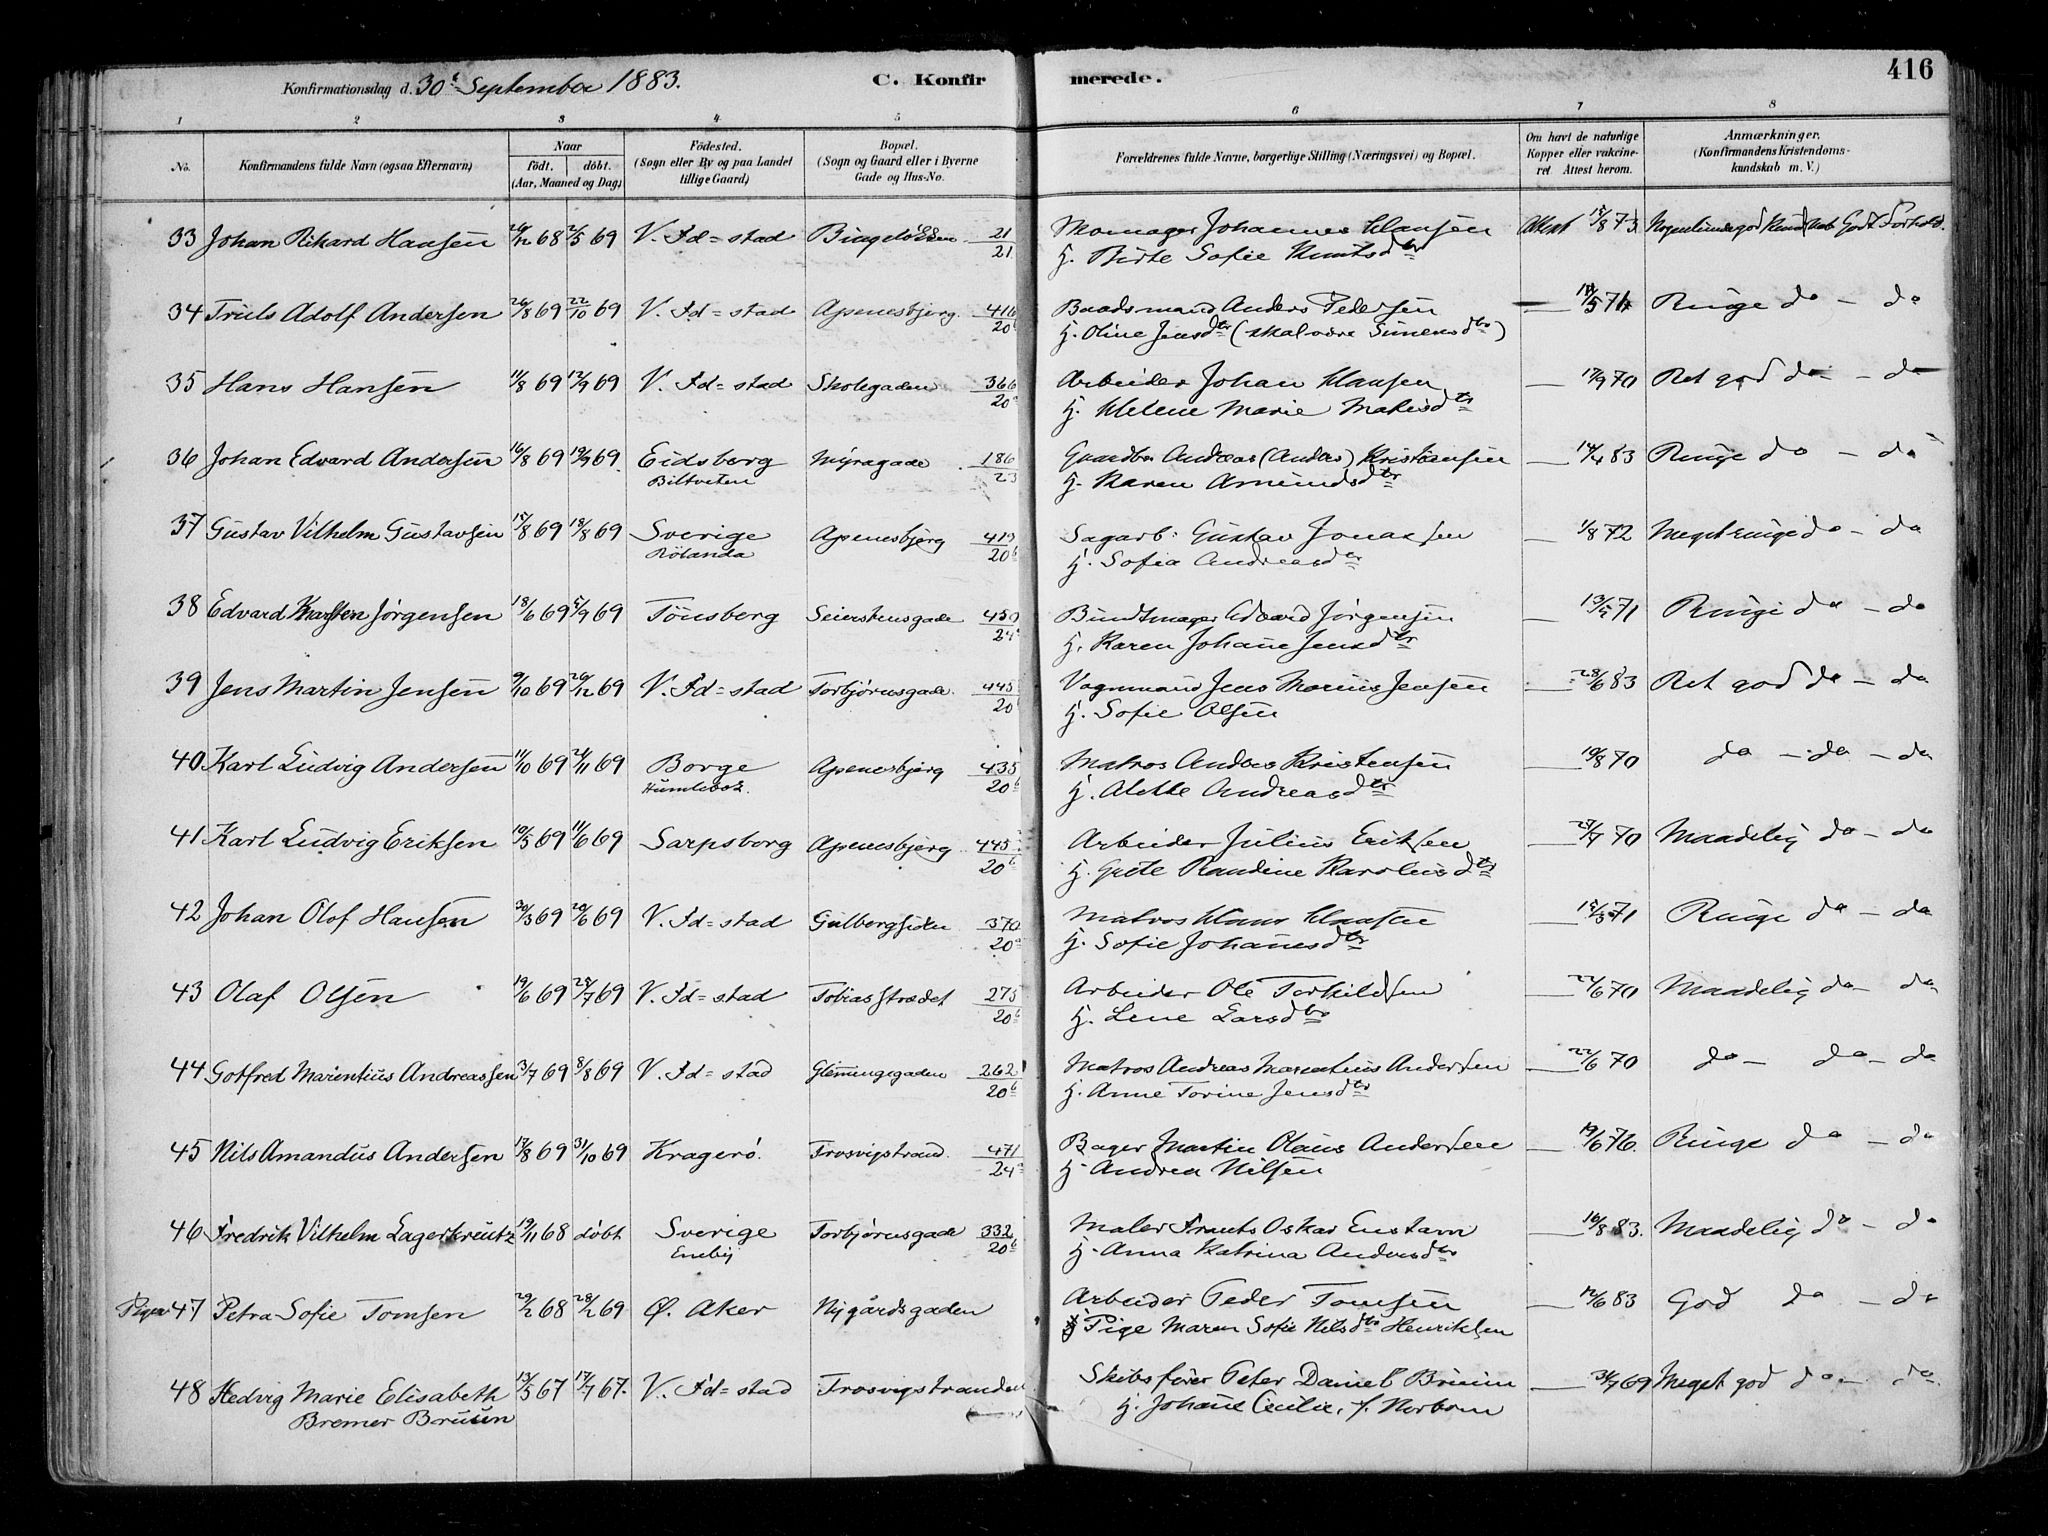 Konfirmationsdag d. 30te September 1883. C. Konfirmerede. 416
1 2 3 4 5 6 7 8
No. Konfirmandens fulde Navn (ogsaa Efternavn) Naar født. døbt. (Aar, Maaned og Dag) Fødested. (Sogn eller By og paa Landet tillige Gaard) Bopæl. (Sogn og Gaard eller i Byerne Gade og Hus-No. Forældrenes fulde Navne, borgerlige Stilling (Næringsvei) og Bopæl. Om havt de naturlige Kopper eller vakcineret. Attest herom. Anmærkninger. (Konfirmandens Kristendomskundskab m.V.)
33 Johan Rikard Hansen 68 2/5 69 V. Fd=stad 21/21 Johannes Hansen Attest 15/8 73. Godt Forhold.
Hj. Birte Sofie Knutsdtr
34 Truls Adolf Andersen 26/8 69 22/10 69 V. Fd=stad Apenesbjerg. 416/20b Baadsmand Anders Pedersen Ringe do - do
Hj. Oline Jensdtr (skal være Simensdtr)
35 Hans Hansen 11/8 69 12/9 69 V. Fd=stad Skolegaden 366/20a Arbeider Johan Hansen 17/9 70 Ret god do - do
Hj. Helene Marie
36 Johan Edvard Andersen 16/8 69 19/9 69. Eidsberg Myragade 186/23 Gaardbr Andreas (Anders) Kristiansen 14/4 83 Ringe do - do
Biltveten Hj. Karen Amundsdtr
37 Gustav Vilhelm Gustavsen 15/8 69 18/8 69 Sverige Apenesbjerg 419/20b Sagarb: Gustav Jonassen 1/8 72 Meget ringe do - do
Rölanda Hj. Sofia Andreasdtr
38 Edvard Karsten Jørgensen 18/6 69 5/9 69 Tönsberg Seierstensgade 450/24a Bundtmager Edvard Jørgensen 13/5 71 Ringe do - do
Hj. Karen Johane Jensdtr
39 Jens Martin Jensen 9/10 69 26/12 69 V. Fd=stad Torbjørnsgade. 445/20b Vognmand Jens Marius Jensen 28/6 83 Ret god do - do
Hj. Sofie Olsen
40 Karl Ludvig Andersen 11/10 69 21/11 69 Borge Apenesbjerg 435/20b Matros Anders Kristensen 19/8 70 do - do - do
Humlebek. Hj. Alette Andreasdtr
41 Karl Ludvig Eriksen 19/5 69 11/6 69 Sarpsborg Apenesbjerg 445/20b Arbeider Julius Eriksen 70 Maadelig do - do
Hj. Grete Randine Karolusdtr
42 Johan Olof Hansen 30/3 69 20/6 69 V. Fd=stad Gulbergsiden 370/20a Matros Hans Hansen 71 Ringe do - do
Hj. Sofie Johanesdtr
43 Olaf Olsen 19/6 69 25/7 69 V. Fd=stad Tobiasstrædet 275/20b Arbeider Ole Torkildsen 22/6 70 Maadelig do - do
Hj. Lene Larsdtr
44 Gotfred Marentius Andreassen 3/7 69 8/8 69 V. Fd=stad Glemmegaden 262/20b Matros Andreas Marentius Andersen 22/6 70 do - do - do
Hj. Anne Torine Jensdtr
45 Nils Amandus Andersen 17/8 69 31/10 69 Kragerö. Trosvigstrand. 471/24a Bager Martin Olaus Andersen 19/6 76. Ringe do - do
Hj. Andrea Nilsen
46 Fredrik Vilhelm Lagerkreutz 19/11 68 döbt Sverige Torbjørnsgade 332/20b Maler Frants Oskar 16/8 83. Maadelig do - do
Emby Hj. Anna Katrina Andersdtr
Piger 47 Petra Sofie Tomsen 29/2 68 28/2 69 Ø. Aker Nygårdsgaden Arbeider Peder Tomsen 12/6 83 God do - do
Pige Maren Sofie Nilsdtr Henriksen
48 Hedvig Marie Elisabeth 13/5 67 17/7 67. V. Fd=stad Trosvigstranden Skibsfører Peter Daniel Bruun 31/7 69 Meget god do - do.
Bremer Bruun Hj. Johane Cecilie, f. Norbom